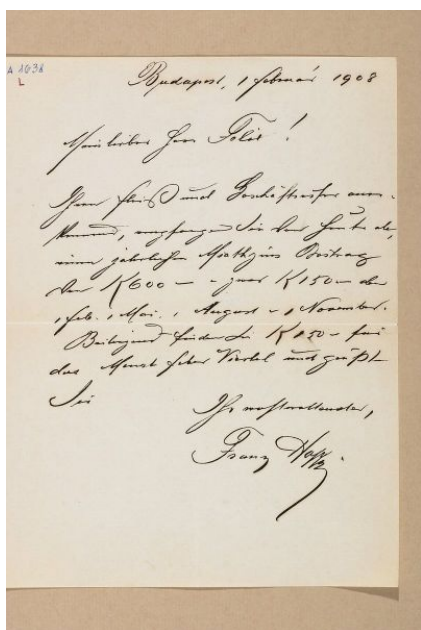 A 1038
L
Budapest, 1 Februar 1908
Mein lieber Herr Felix!
Ihren Fleiß und Geschäftseifer aner-
kennend, empfangen Sie von heute ab,
einen jährlichen Mietzins Beitrag
von K 600 — zwar K 150 — den
1 Feb. 1 Mai. 1 August 1 November.
Beiliegend finden Sie K 150 — für
das Februar Viertel und grüßt
Sie
Ihr wohlwollender,
Franz Hopp